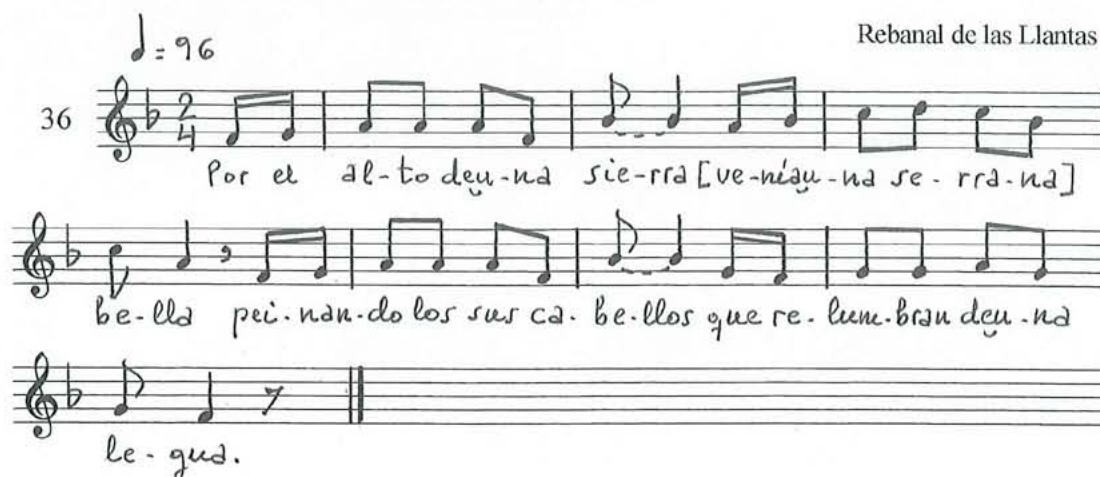 ♩ = 96
Rebanal de las Llantas
36
2
4
Por el al-to deu-na sie-rra [ve-níau-na se-rra-na]
be-lla pei-nan-do los sus ca-be-llos que re-lum-bran deu-na
le-gua.